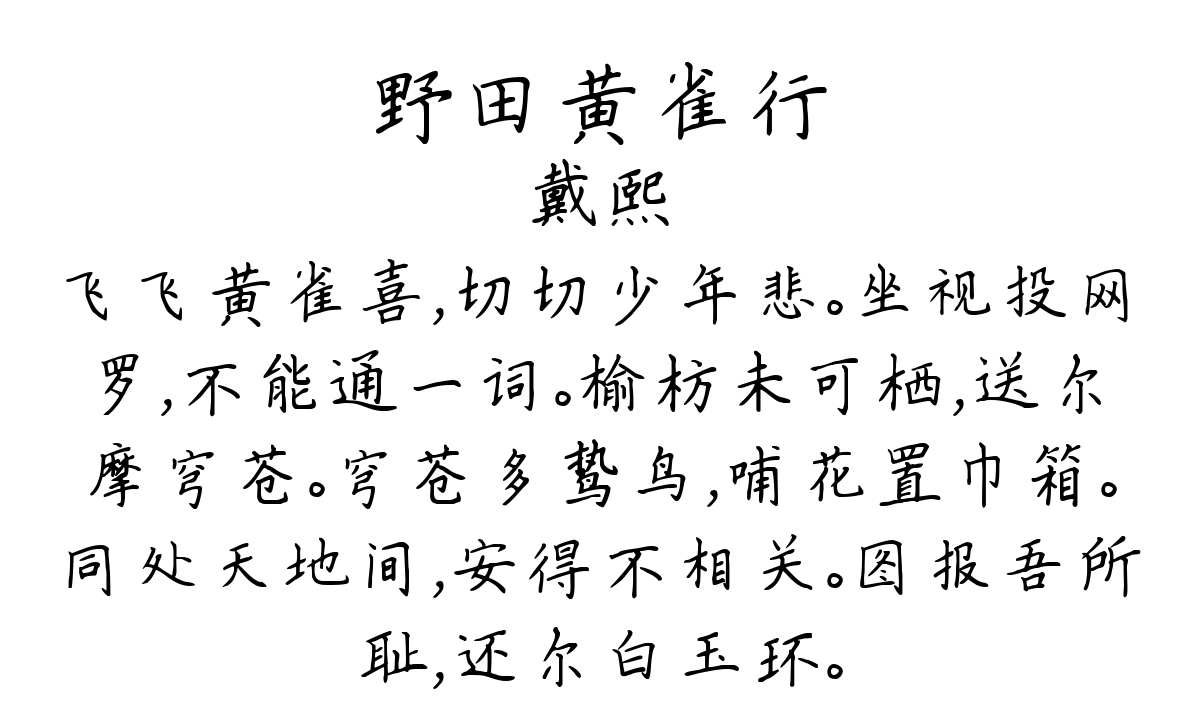 野田黄雀行
戴熙
飞飞黄雀喜,切切少年悲。坐视投网
罗,不能通一词。榆枋未可栖,送尔
摩穹苍。穹苍多鸷鸟,哺花置巾箱。
同处天地间,安得不相关。图报吾所
耻,还尔白玉环。